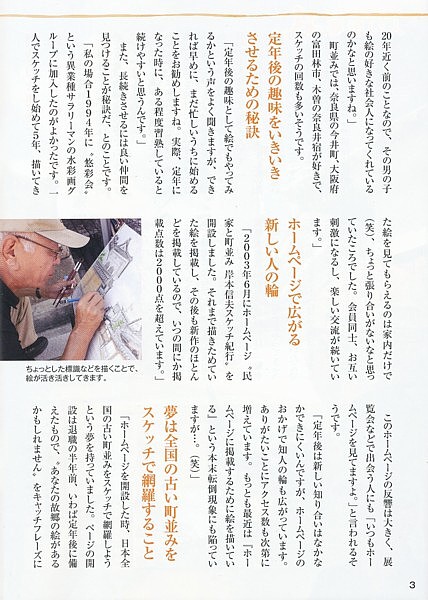 20年近く前のことなので、その男の子
も絵の好きな社会人になってくれている
のかなと思いますね。」
町並みでは、奈良県の今井町、大阪府
の富田林市、木曽の奈良井宿が好きで、
スケッチの回数も多いそうです。
定年後の趣味をいきいき
させるための秘訣
「「定年後の趣味として絵でもやってみ
るか」という声をよく聞きますが、でき
れば早めに、まだ忙しいうちに始める
ことをお勧めしますね。実際、定年に
なった時に、ある程度習熟していると
続けやすいと思うんです。」
また、長続きさせるには良い仲間を
見つけることが秘訣だ、とのことです。
「私の場合1994年に〝悠彩会〟
という異業種サラリーマンの水彩画グ
ループに加入したのがよかったです。一
人でスケッチをし始めて5年、描いてき
た絵を見てもらえるのは家内だけで
(笑)、ちょっと張り合いがないなと思っ
ていたころでした。会員同士、お互い
刺激になるし、楽しい交流が続いてい
ます。」
ホームページで広がる
新しい人の輪
「2003年6月にホームページ〝民
家と町並み 岸本信夫スケッチ紀行〟を
開設しました。それまで描きためてい
た絵を掲載し、その後も新作のほとん
どを掲載しているので、いつの間にか掲
載点数は2000点を超えています。」
ちょっとした標識などを描くことで、
絵が活き活きしてきます。
このホームページの反響は大きく、展
覧会などで出会う人にも「いつもホー
ムページを見てますよ。」と言われるそ
うです。
「定年後は新しい知り合いはなかな
かできにくいんですが、ホームページの
おかげで知人の輪も広がっています。
ありがたいことにアクセス数も次第に
増えています。もっとも最近は〝ホー
ムページに掲載するために絵を描いてい
る〟という本末転倒現象にも陥ってい
ますが…。(笑)」
夢は全国の古い町並みを
スケッチで網羅すること
「ホームページを開設した時、日本全
国の古い町並みをスケッチで網羅しよう
という夢を持っていました。ページの開
設は退職の半年前、いわば定年後に備
えたもので、〝あなたの故郷の絵がある
かもしれません〟をキャッチフレーズに
3